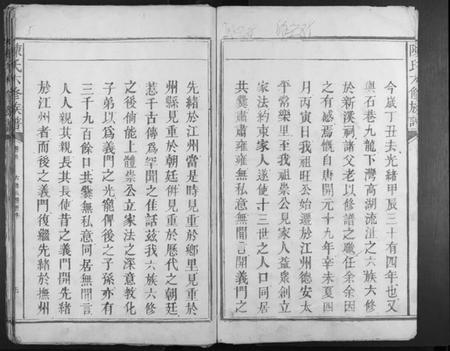 陳氏六修族譜
今歲丁丑去光緒甲辰三十有四年也又
與石巷九龍下灣高湖流泚之六族六修
於新溪祠諸父老以修譜之職任余余因
之有感焉慨自唐開元十九年辛未夏四
月丙寅日我祖旺公始遷於江州德安太
平常樂里至我祖崇公見家人益眾創立
家法約束家人遂使十三世之人口同居
共爨肅肅雍雍無私意無間言開義門之
先緒於江州當是時見重於鄉里見重於
州縣見重於朝廷併見重於歷代之朝廷
惹千古傳為罕聞之佳話玆我六族六修
之後倘能上體崇公立家法之深意教化
子弟以為義門之光寵俾後之子孫亦有
三千九百餘口共爨無私意同居無間言
人人親其親長其長使昔之義門開先緒
於江州者而後之義門復繼先緒於撫州
陳氏六修族譜